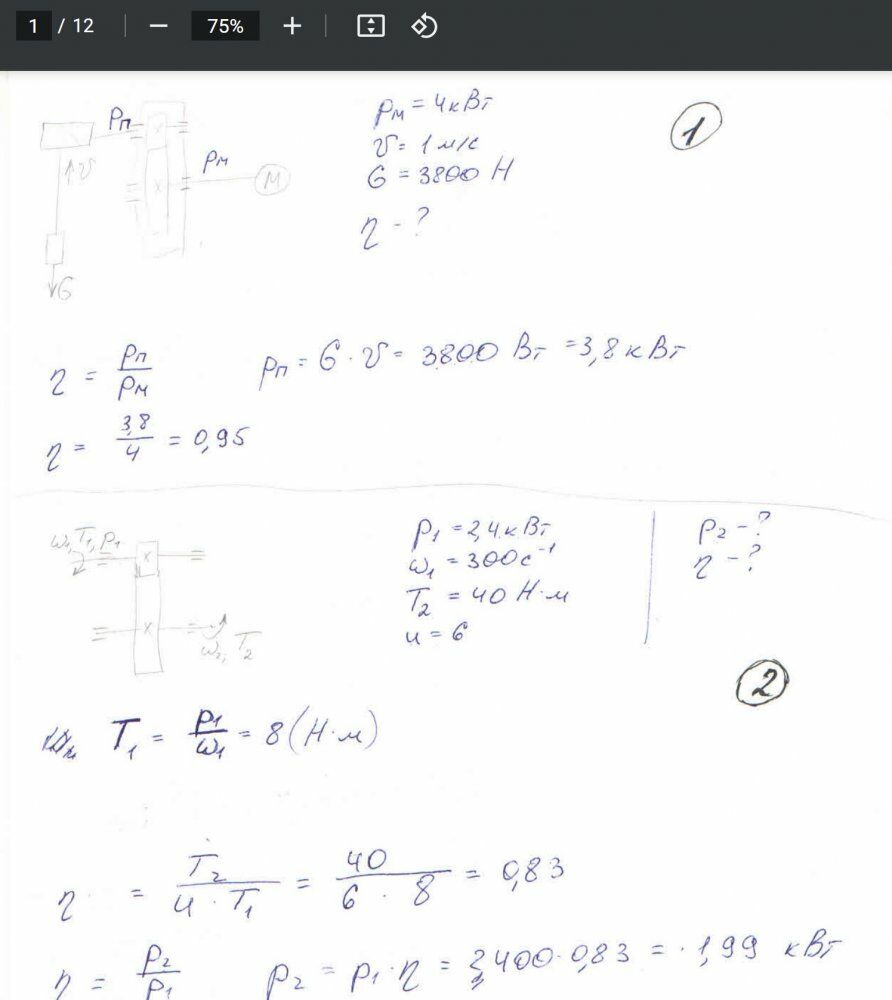 1 / 12 75%
Pп
Pм
v
M
G
Pм = 4 кВт
v = 1 м/с
G = 3800 Н
η - ?
1
η = Pп/Pм Pп = G · v = 3800 Вт = 3,8 кВт
η = 3,8/4 = 0,95
ω₁, T₁, P₁
ω₂, T₂
P₁ = 2,4 кВт
ω₁ = 300 с⁻¹
T₂ = 40 Н·м
u = 6
P₂ - ?
η - ?
2
T₁ = P₁/ω₁ = 8 (Н·м)
η = T₂/(u · T₁) = 40/(6 · 8) = 0,83
η = P₂/P₁ P₂ = P₁ · η = 2,400 · 0,83 = 1,99 кВт